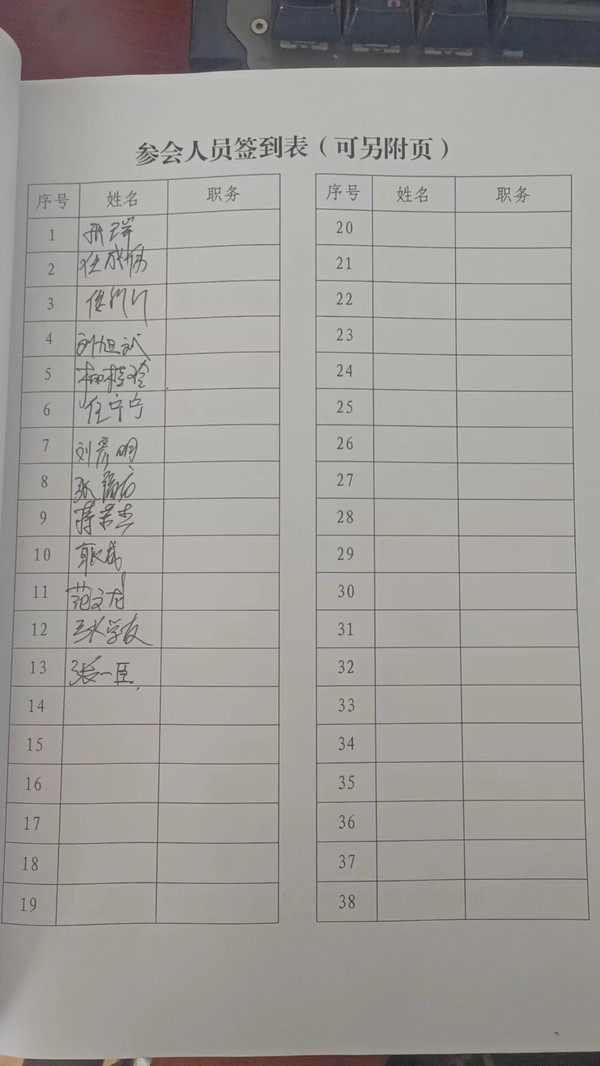 参会人员签到表（可另附页）
序号 姓名 职务
1
2
3
4 刘旭武
5 柳桂玲
6 任宁宁
7 刘彦明
8
9
10
11 范文龙
12 张学友
13 张一臣
14
15
16
17
18
19
序号 姓名 职务
20
21
22
23
24
25
26
27
28
29
30
31
32
33
34
35
36
37
38